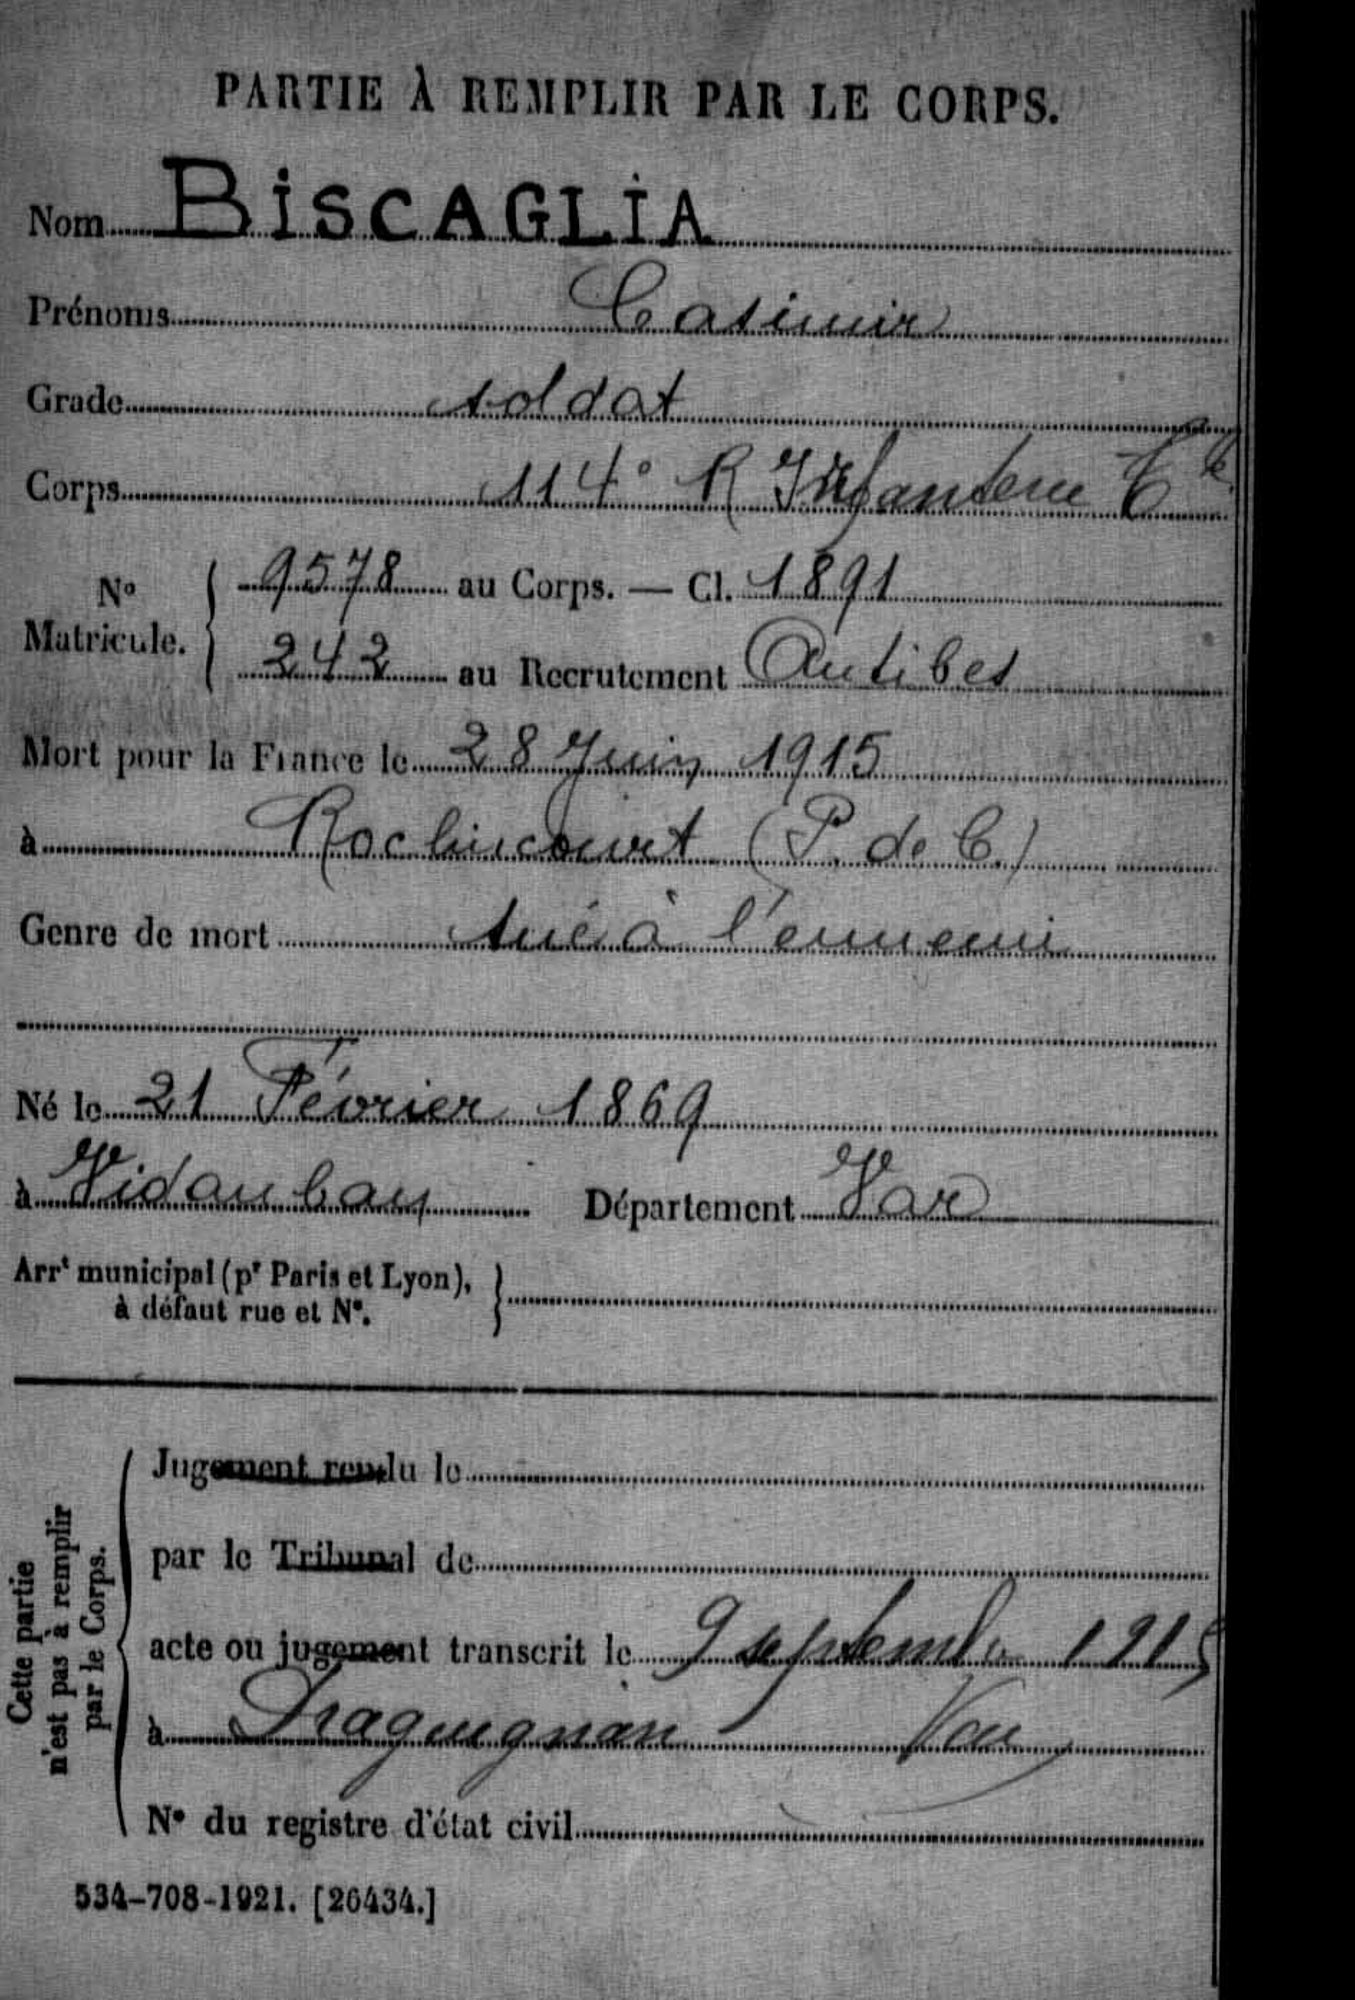 PARTIE À REMPLIR PAR LE CORPS.
Nom BISCAGLIA
Prénoms Casimir
Grade soldat
Corps 114° R Infanterie Tle
No Matricule. 9578 au Corps. — Cl. 1891
242 au Recrutement Antibes
Mort pour la France le 28 Juin 1915
à Roclincourt (P. de C.)
Genre de mort tué à l'ennemi
Né le 21 Février 1869
à Vidauban Département Var
Arrt municipal (pr Paris et Lyon),
à défaut rue et No.
Cette partie
n'est pas à remplir
par le Corps.
Jugement rendu le
par le Tribunal de
acte ou jugement transcrit le 9 septembre 1915
à Draguignan Var
No du registre d'état civil
534-708-1921. [26434.]